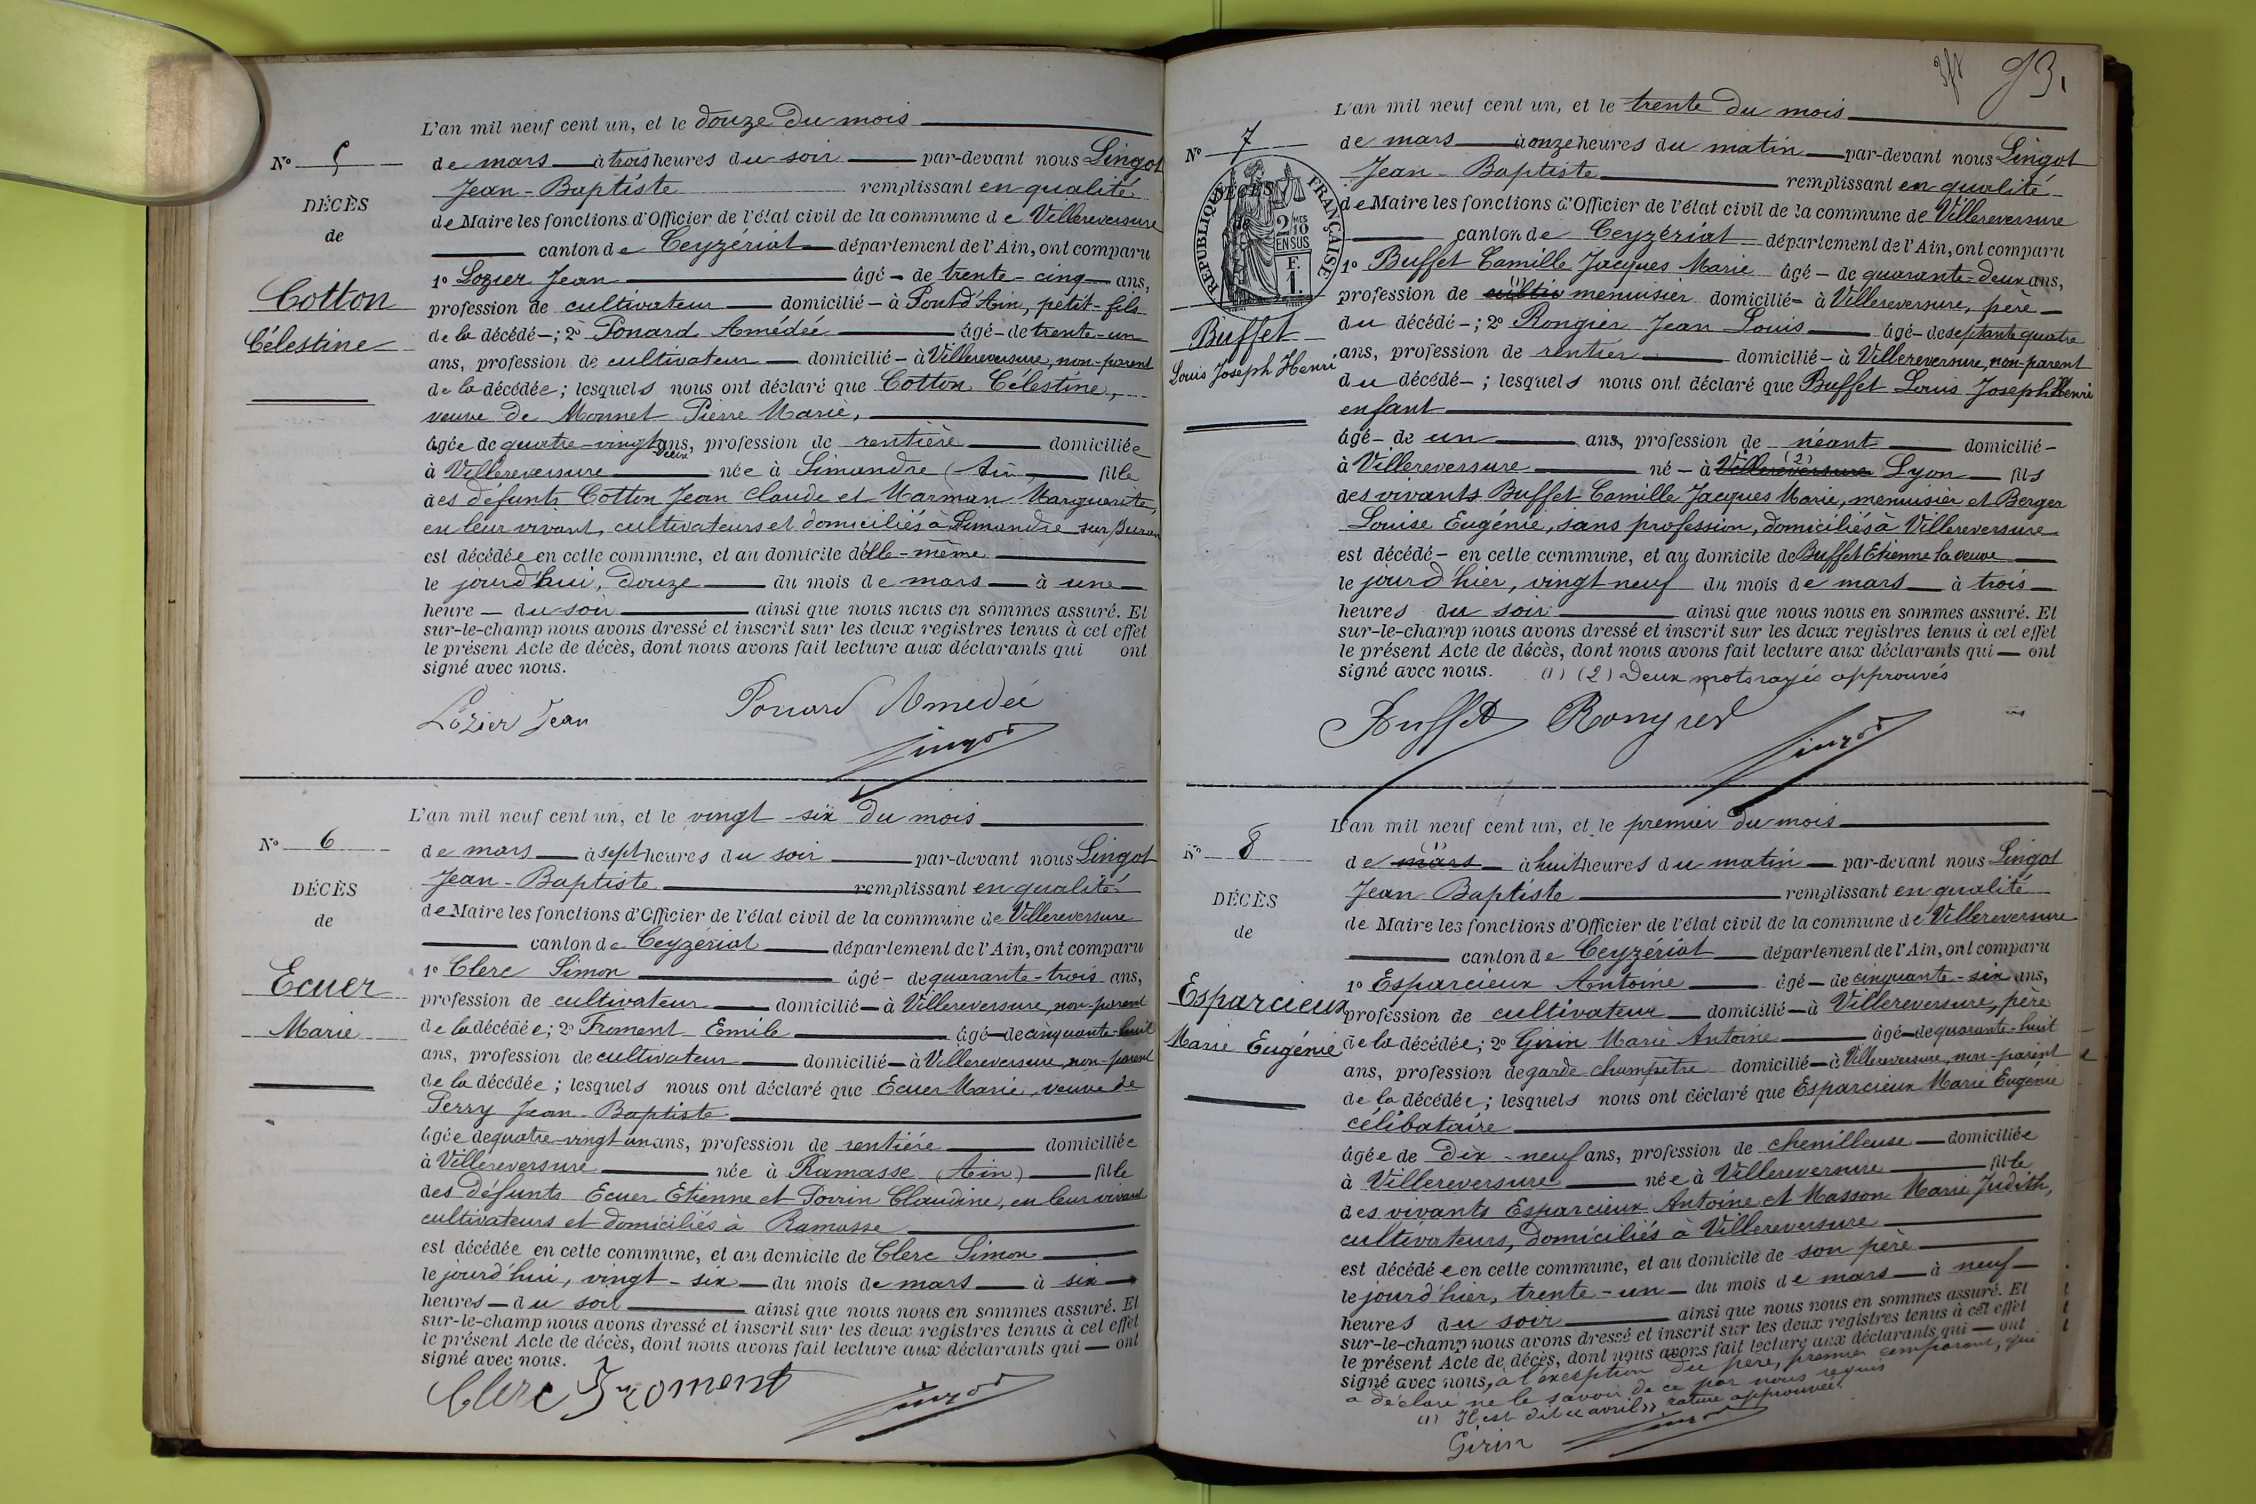 N° 5
DÉCÈS
de
Cotton
Célestine
L'an mil neuf cent un, et le douze du mois
de mars à trois heures du soir par-devant nous Lingot
Jean-Baptiste remplissant en qualité
de Maire les fonctions d'Officier de l'état civil de la commune de Villereversure
canton de Ceyzériat département de l'Ain, ont comparu
1° Lozier Jean âgé de trente-cinq ans,
profession de cultivateur domicilié à Pont d'Ain, petit-fils
de la décédé; 2° Ponard Amédée âgé de trente-un
ans, profession de cultivateur domicilié à Villereversure, non-parent
de la décédée; lesquels nous ont déclaré que Cotton Célestine,
veuve de Monnet Pierre Marie,
âgée de quatre-vingt deux ans, profession de rentière domiciliée
à Villereversure née à Simandre (Ain) fille
des défunts Cotton Jean Claude et Marman Marguerite,
en leur vivant, cultivateurs et domiciliés à Simandre sur Suran
est décédée en cette commune, et au domicile d'elle-même
le jourd'hui, douze du mois de mars à une
heure du soir ainsi que nous nous en sommes assuré. Et
sur-le-champ nous avons dressé et inscrit sur les deux registres tenus à cet effet
le présent Acte de décès, dont nous avons fait lecture aux déclarants qui ont
signé avec nous.
Lozier Jean Ponard Amédée
Lingot
N° 6
DÉCÈS
de
Ecuer
Marie
L'an mil neuf cent un, et le vingt-six du mois
de mars à sept heures du soir par-devant nous Lingot
Jean-Baptiste remplissant en qualité
de Maire les fonctions d'Officier de l'état civil de la commune de Villereversure
canton de Ceyzériat département de l'Ain, ont comparu
1° Clerc Simon âgé de quarante-trois ans,
profession de cultivateur domicilié à Villereversure, non-parent
de la décédée; 2° Froment Emile âgé de cinquante-huit
ans, profession de cultivateur domicilié à Villereversure, non-parent
de la décédée; lesquels nous ont déclaré que Ecuer Marie, veuve de
Perry Jean-Baptiste
âgée de quatre-vingt un ans, profession de rentière domiciliée
à Villereversure née à Ramasse (Ain) fille
des défunts Ecuer Etienne et Claudine, en leur vivant
cultivateurs et domiciliés à Ramasse
est décédée en cette commune, et au domicile de Clerc Simon
le jourd'hui, vingt-six du mois de mars à six
heures du soir ainsi que nous nous en sommes assuré. Et
sur-le-champ nous avons dressé et inscrit sur les deux registres tenus à cet effet
le présent Acte de décès, dont nous avons fait lecture aux déclarants qui ont
signé avec nous.
Clerc Froment
Lingot
93.
N° 7
RÉPUBLIQUE FRANÇAISE
2/10 MES
EN SUS
F.
1.
DÉCÈS
de
Buffet
Louis Joseph Henri
L'an mil neuf cent un, et le trente du mois
de mars à onze heures du matin par-devant nous Lingot
Jean-Baptiste remplissant en qualité
de Maire les fonctions d'Officier de l'état civil de la commune de Villereversure
canton de Ceyzériat département de l'Ain, ont comparu
1° Buffet Camille Jacques Marie âgé de quarante-deux ans,
profession de (1) cultiv menuisier domicilié à Villereversure, père
du décédé; 2° Rongier Jean Louis âgé de septante quatre
ans, profession de rentier domicilié à Villereversure, non-parent
du décédé; lesquels nous ont déclaré que Buffet Louis Joseph Henri
enfant
âgé de un ans, profession de néant domicilié
à Villereversure né à Villereversure (2) Lyon fils
des vivants Buffet Camille Jacques Marie, menuisier et Berger
Louise Eugénie, sans profession, domiciliés à Villereversure
est décédé en cette commune, et au domicile de Buffet Etienne la veuve
le jourd'hier, vingt neuf du mois de mars à trois
heures du soir ainsi que nous nous en sommes assuré. Et
sur-le-champ nous avons dressé et inscrit sur les deux registres tenus à cet effet
le présent Acte de décès, dont nous avons fait lecture aux déclarants qui ont
signé avec nous. (1) (2) Deux mots rayés approuvés
Buffet Rongier
Lingot
N° 8
DÉCÈS
de
Esparcieux
Marie Eugénie
L'an mil neuf cent un, et le premier du mois
de mars (1) à huit heures du matin par-devant nous Lingot
Jean-Baptiste remplissant en qualité
de Maire les fonctions d'Officier de l'état civil de la commune de Villereversure
canton de Ceyzériat département de l'Ain, ont comparu
1° Esparcieux Antoine âgé de cinquante-six ans,
profession de cultivateur domicilié à Villereversure, père
de la décédée; 2° Girin Marie Antoine âgé de quarante-huit
ans, profession de garde champêtre domicilié à Villereversure, non-parent
de la décédée; lesquels nous ont déclaré que Esparcieux Marie Eugénie
célibataire
âgée de dix-neuf ans, profession de chenilleuse domiciliée
à Villereversure née à Villereversure fille
des vivants Esparcieux Antoine et Masson Marie Judith,
cultivateurs, domiciliés à Villereversure
est décédée en cette commune, et au domicile de son père
le jourd'hier, trente-un du mois de mars à neuf
heures du soir ainsi que nous nous en sommes assuré. Et
sur-le-champ nous avons dressé et inscrit sur les deux registres tenus à cet effet
le présent Acte de décès, dont nous avons fait lecture aux déclarants qui ont
signé avec nous, à l'exception du père, premier comparant, qui
a déclaré ne le savoir de ce par nous requis
(1) Il est dit « avril » rature approuvée.
Girin Lingot